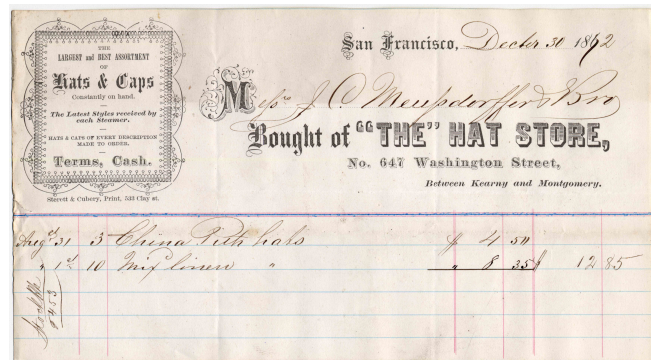 THE
LARGEST and BEST ASSORTMENT
OF
Hats & Caps
Constantly on hand.
The Latest Styles received by
each Steamer.
HATS & CAPS OF EVERY DESCRIPTION
MADE TO ORDER.
Terms, Cash.
Sterett & Cubery, Print, 533 Clay st.
San Francisco, Decbr 30 1862
Messrs J. C. Meussdorffer & Bro
Bought of "THE" HAT STORE,
No. 647 Washington Street,
Between Kearny and Montgomery.
31 3 China Pith hats $ 4 50
" 1st 10 linen " " 8 35 $ 12 85